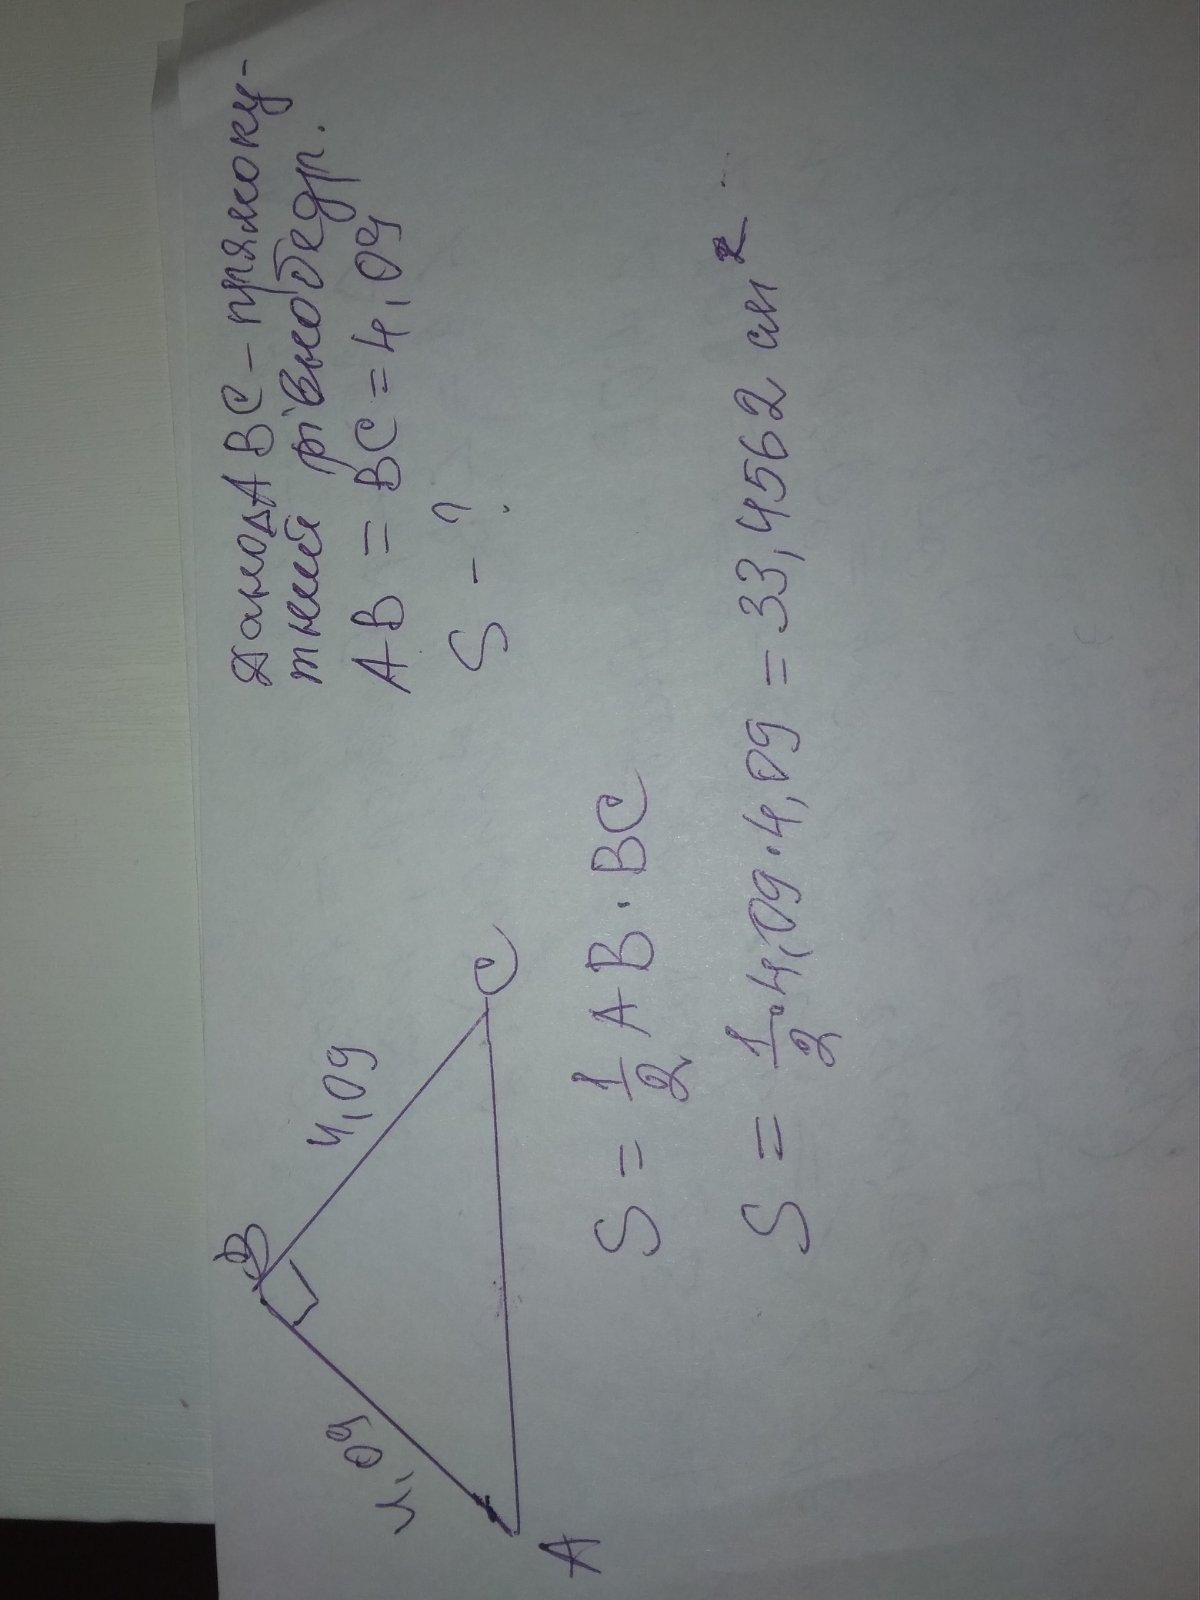 Дано Δ ABC - прямоку-
тний рівнобедр.
AB = BC = 4,09
S - ?
B
4,09
4,09
A
C
S = 1/2 AB · BC
S = 1/2 · 4,09 · 4,09 = 33,4562 см²